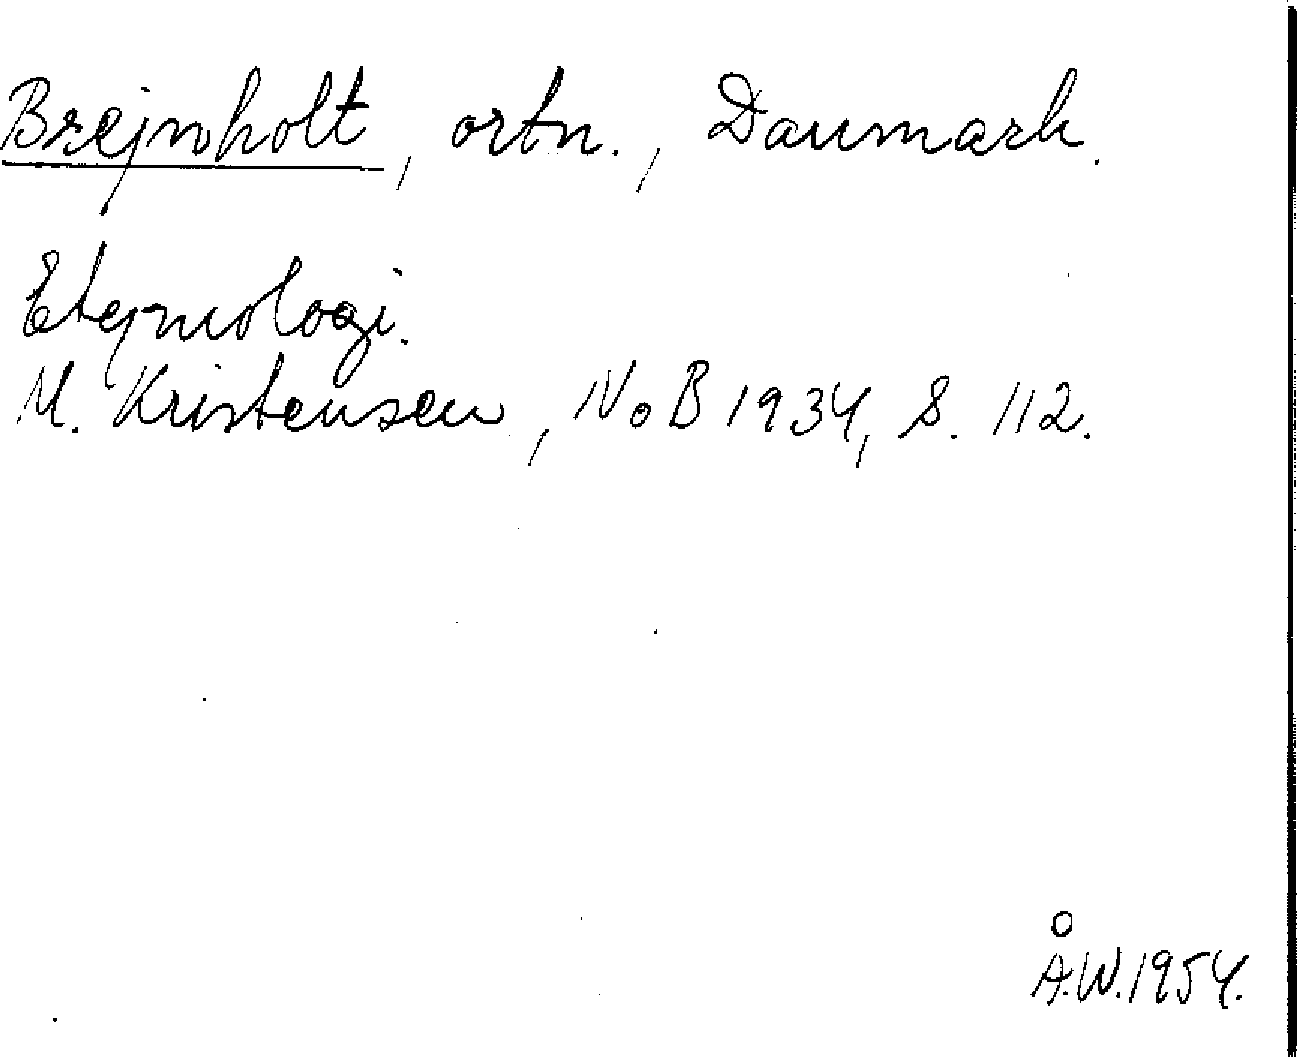 Brejnholt, ortn., Danmark.
Etymologi.
M. Kristensen, NoB 1934, S. 112.
Å.W. 1954.